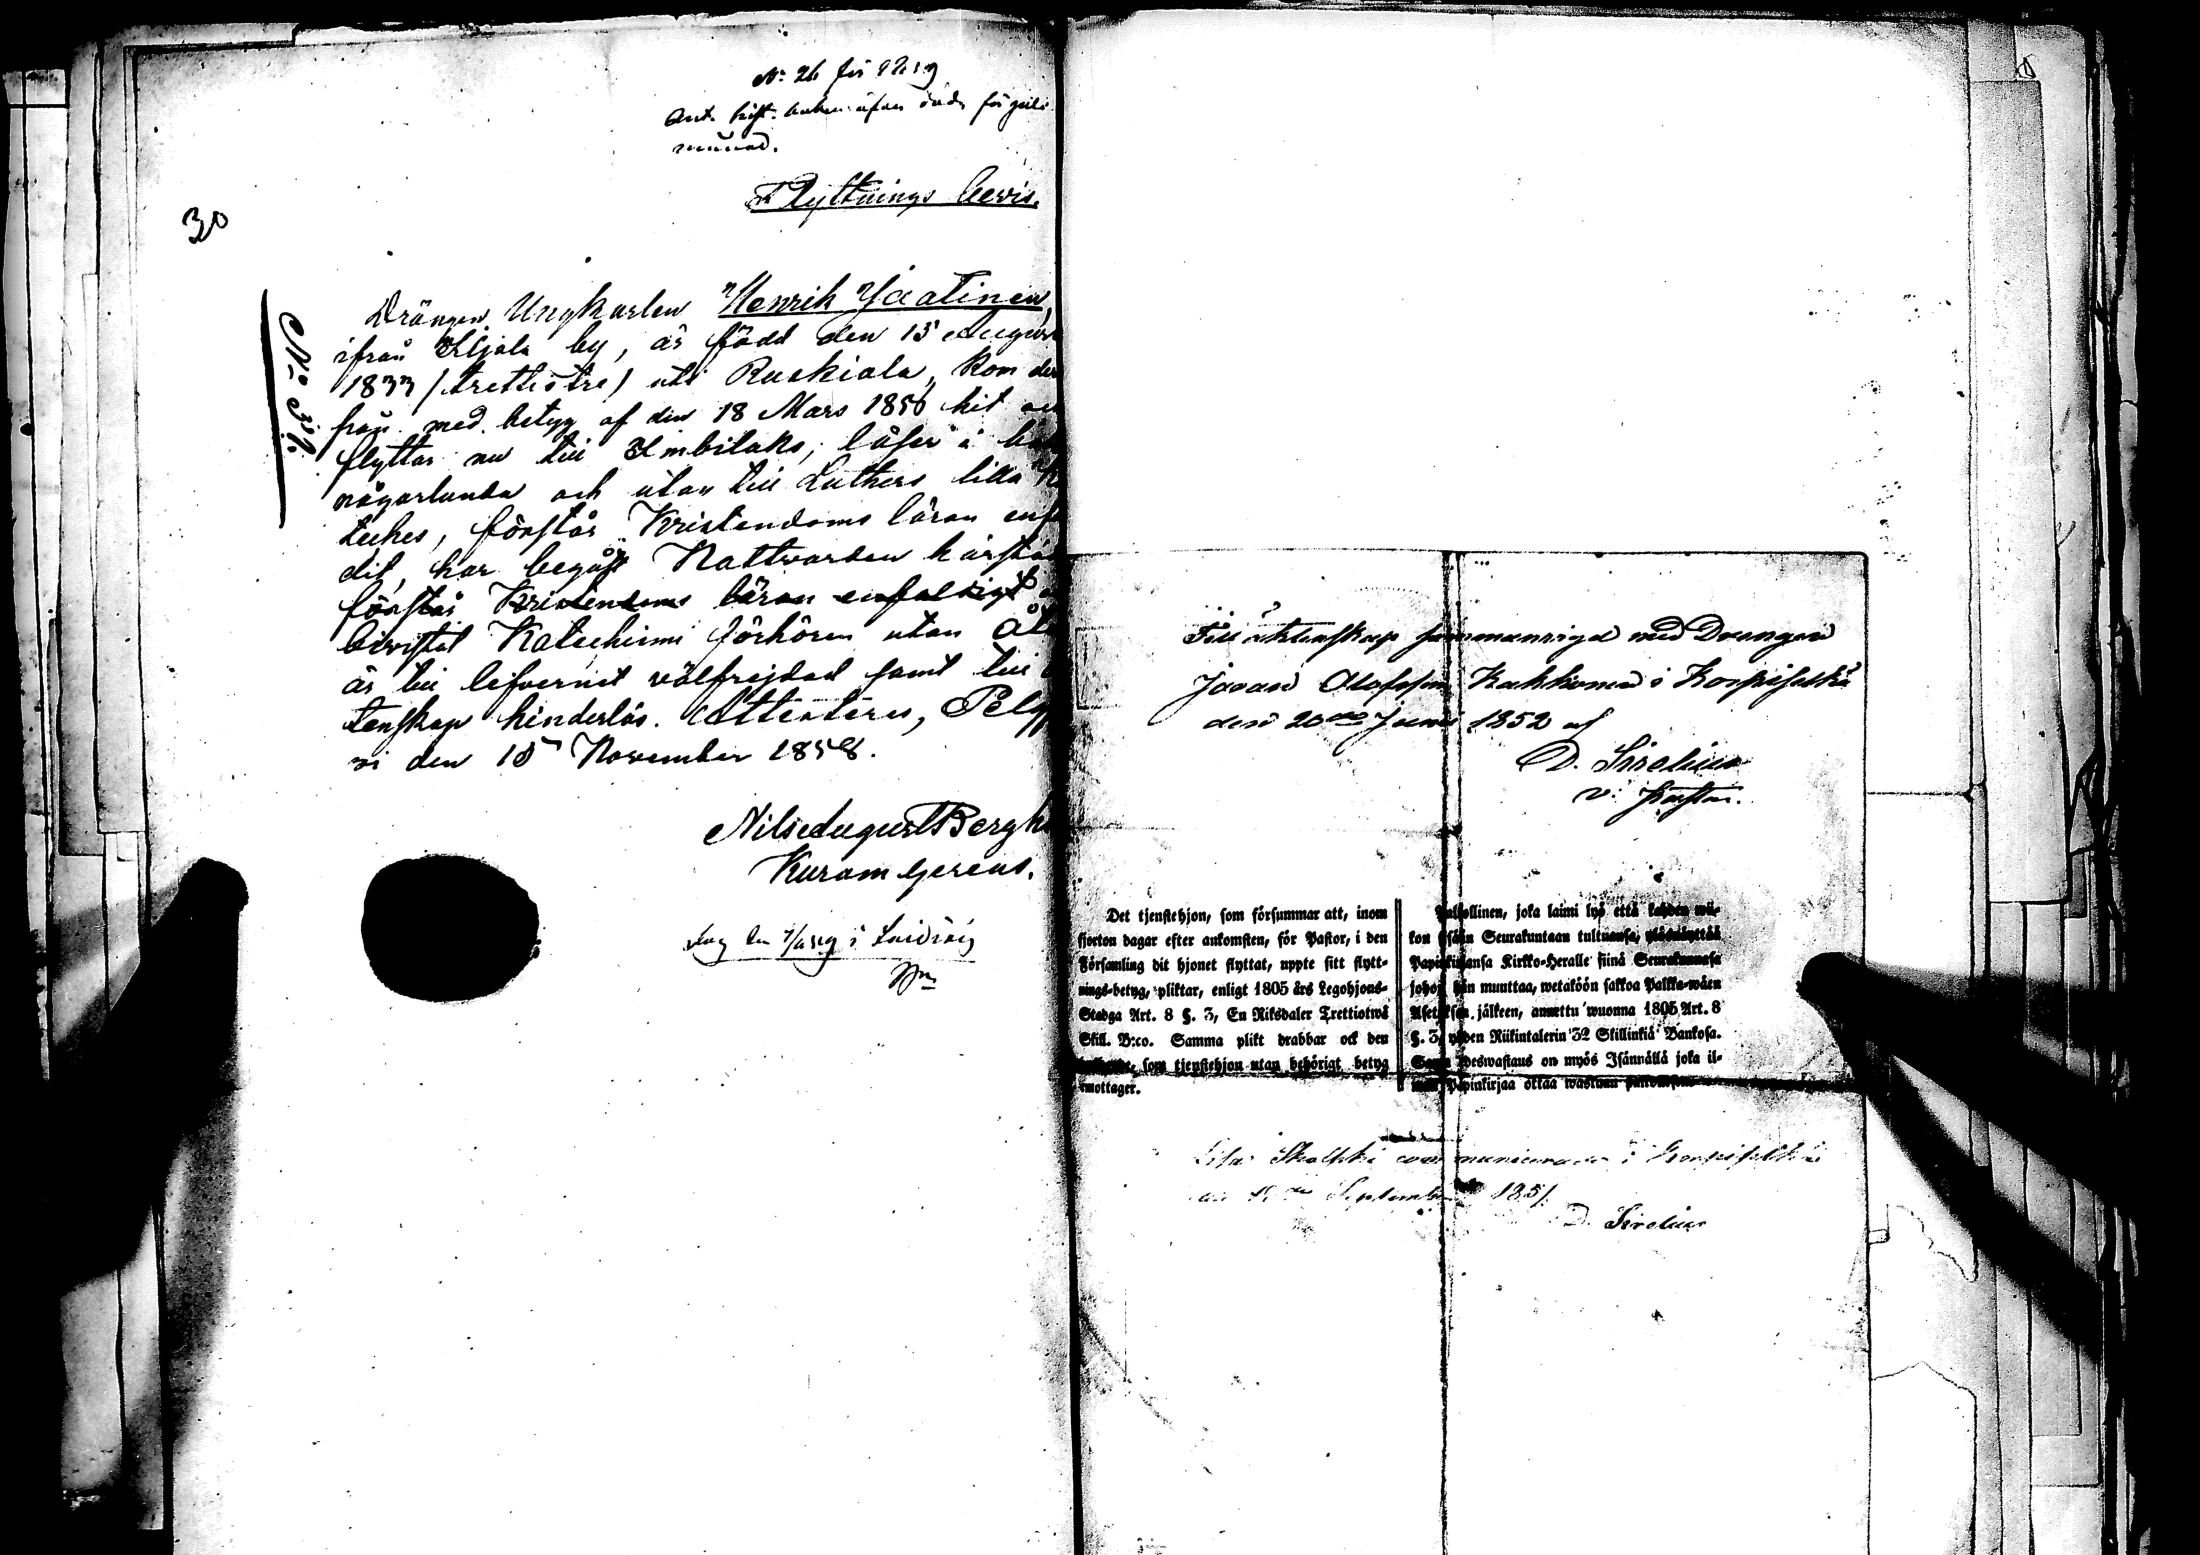 30
Flyttnings bevis.
N:o 39.
Drängen Ungkarlen Henrik Jaatinen,
ifrån Iljala by, är född den 15 August
1833 (trettiotre) uti Ruskiala, kom der
från med betyg af den 18 Mars 1856 hit oc
flyttar nu till Imbilaks; läser i bok
någorlunda och utan till Luthers lilla K
teches, förstår Kristendoms läran enfa
dit, har begått Nattvarden härstä
förstår Kristendoms läran enfaldigt
bevistat Katechismi förhören utan
är till lefvernet välfrejdad samt till
tenskap hinderlös. Attesteras, Pelg
vi den 15 November 1858.
Nils August Bergh
Kuram gerens.
Till äktenskap sammanvigd med Drängen
Johan Olofsson Kakkonen i Korpiselkä
den 20de Junii 1852 af
D. Sirelius
v: Pastor.
Det tjenstehjon, som försummar att, inom
fjorton dagar efter ankomsten, för Pastor, i den
Församling dit hjonet flyttat, uppte sitt flytt-
nings-betyg, pliktar, enligt 1805 års Legohjons-
Stadga Art. 8 §. 3, En Riksdaler Trettiotwå
Skill. B:co. Samma plikt drabbar ock den
som tjenstehjon utan behörigt betyg
emottager.
Palkollinen, joka laimi lyö että kahden wii-
kon sisään Seurakuntaan tultuansa, ylösnäyttää
Papinkirjansa Kirkko-Heralle siinä Seurakunnasa
johon hän muuttaa, wetäköön sakkoa Palkka-wäen
Asetuksen jälkeen, annettu wuonna 1805 Art. 8
§. 3, yhden Riikintalerin 32 Skillinkiä Bankosa.
Sama edeswastaus on myös Isännällä joka il-
man Papinkirjaa ottaa wastaan
communicerade i Korpiselkä
September 1851
D. Sirelius